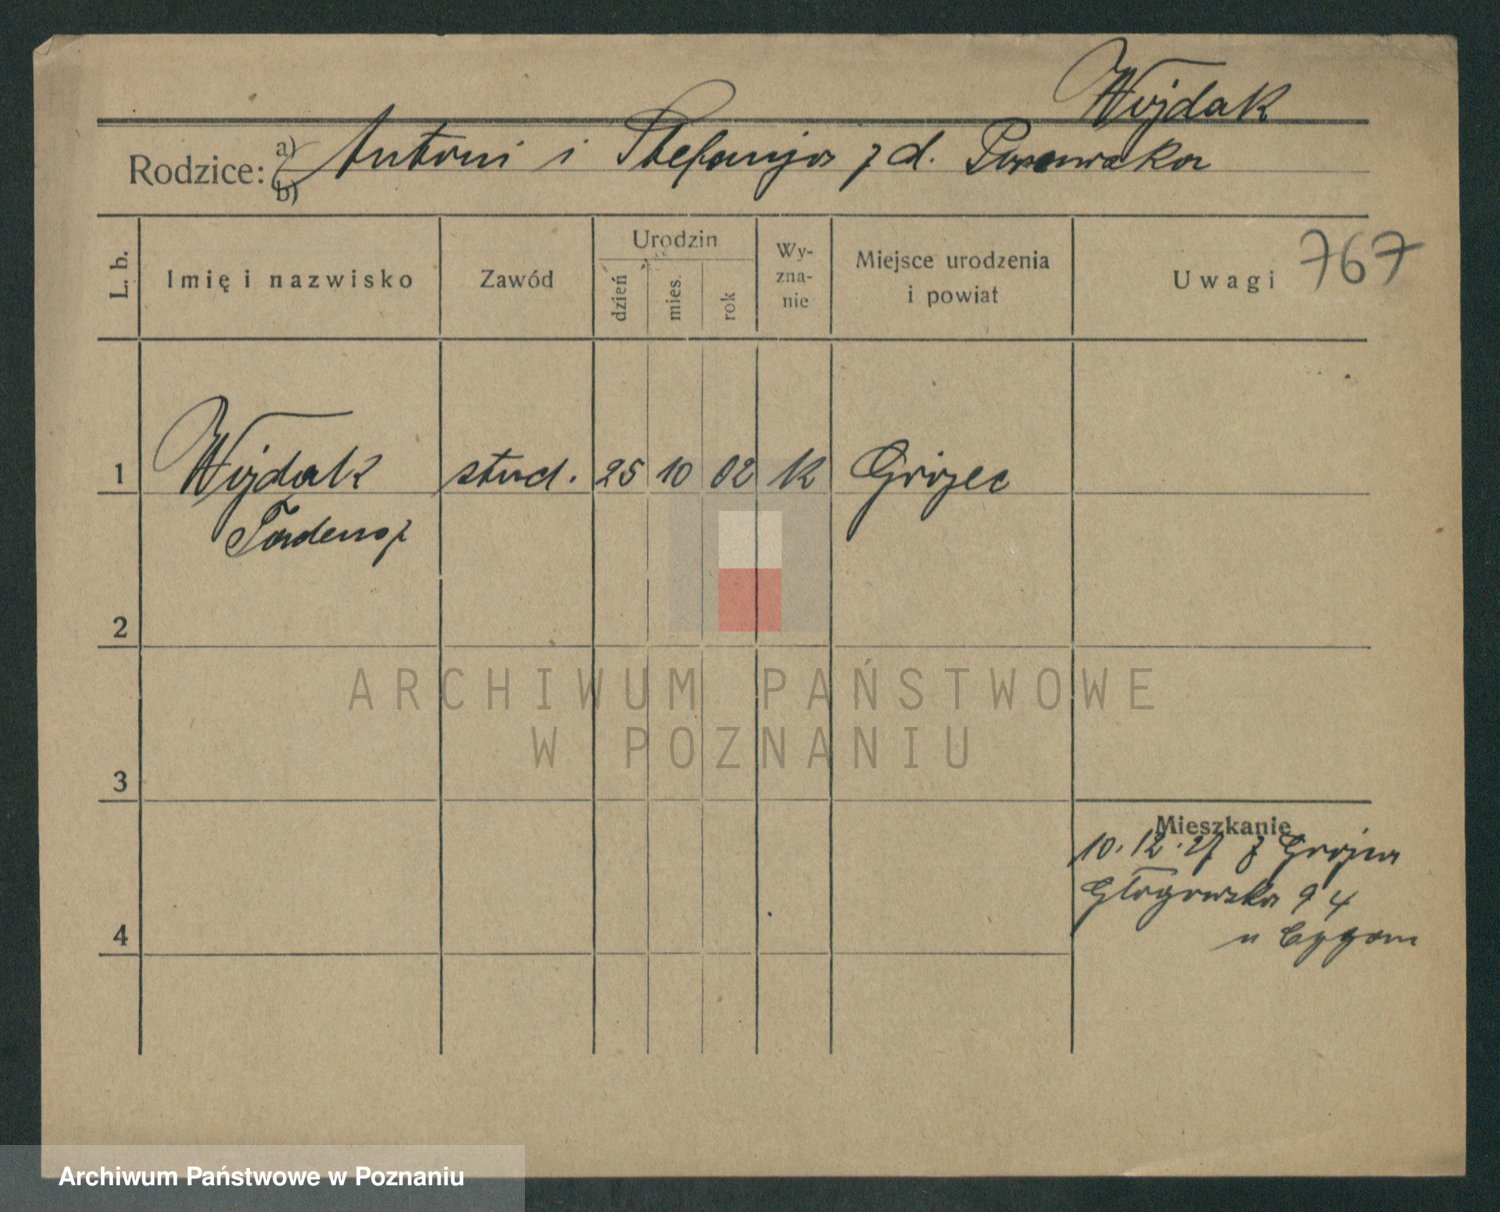 Wojdak
Rodzice: a) b) Antoni i Stefanja z d.
L. b.
Imię i nazwisko
Zawód
Urodzin
dzień
mies.
rok
Wy-
zna-
nie
Miejsce urodzenia
i powiat
Uwagi 767
1 Wojdak stud. 25 10 02 K Grójec
Tadeusz
2
ARCHIWUM PAŃSTWOWE
W POZNANIU
3
Mieszkanie
10.12.27 z Grójca
Głogowska 94
u
4
Archiwum Państwowe w Poznaniu